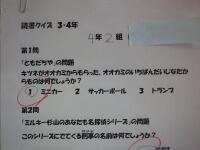 読書クイズ 3・4年
4年 2組
第1問
「ともだちや」の問題
キツネがオオカミからもらった、オオカミのいちばんだいじなたからものは何でしょうか?
1 ミニカー 2 サッカーボール 3 トランプ
第2問
「ミルキー杉山のあなたも名探偵シリーズ」の問題
このシリーズにでてくる刑事の名前は何でしょうか?